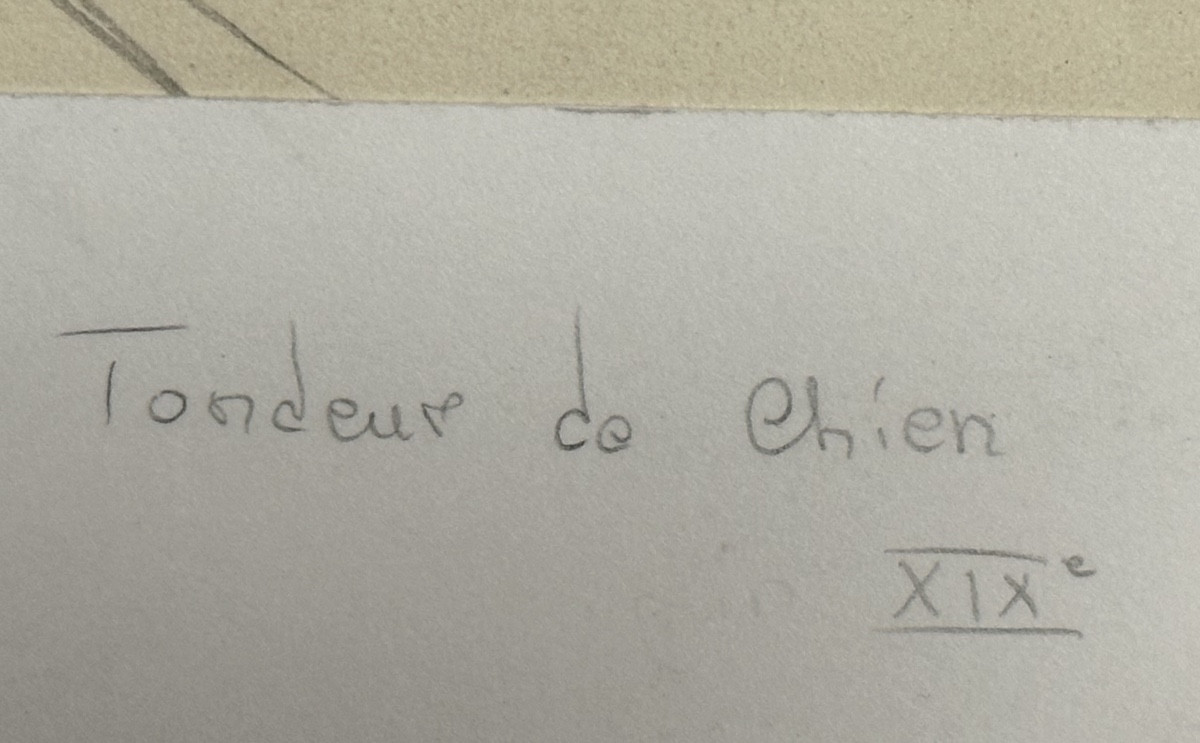 Tondeur de Chien
XIXe